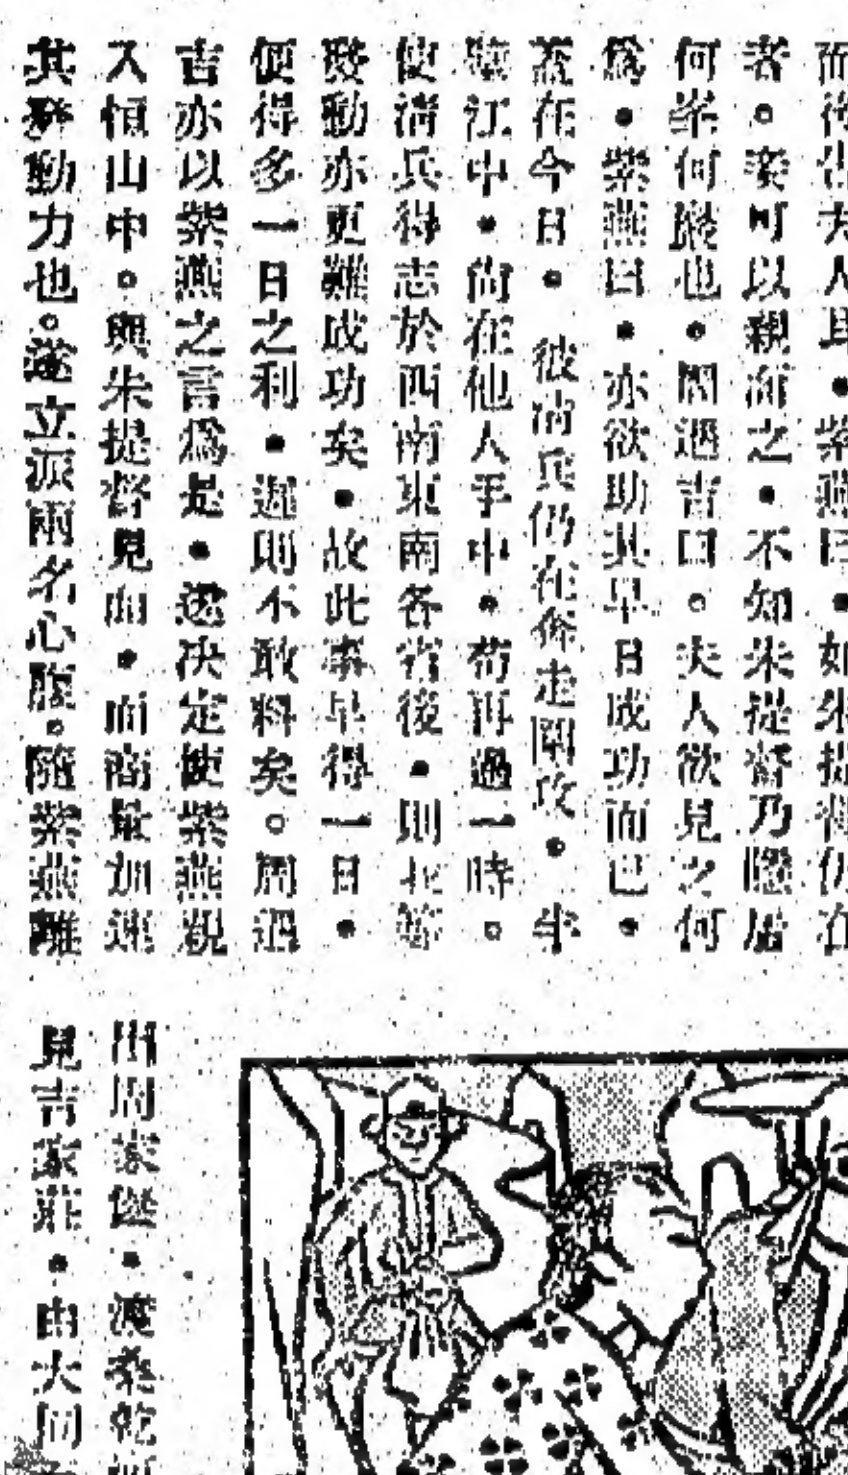 而後告夫人耳・紫燕曰・如朱提督仍在
者。妾可以親面之・不知朱提督乃隱居
何崇何巖也・周遇吉曰。夫人欲見之何
爲・紫燕曰・亦欲助其早日成功而已・
蓋在今日・彼淸兵仍在奔走關攻・半
壁江中・尙在他人手中・苟再過一時。
使淸兵得志於西南東南各省後・則此等
發動亦更難成功矣・故此事早得一日・
便得多一日之利・遲則不敢料矣。周遇
吉亦以紫燕之言爲是・遂決定使紫燕親
入恒山中。與朱提督見面・而商量加速
其發動力也。遂立派兩名心腹。隨紫燕離
出周家堡・渡桑乾
見吉家莊・由大同